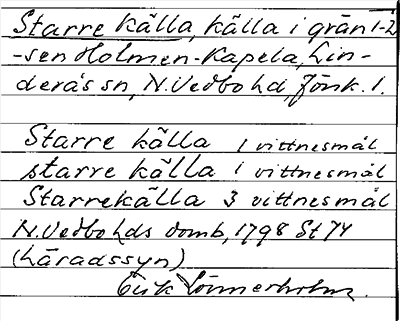 Starre källa, källa i grän 1-2
-sen Holmen-Kapela, Lin-
derås sn, N. Vedbo hd, Jönk. l.
Starre källa 1 vittnesmål
starre källa 1 vittnesmål
Starrekälla 3 vittnesmål
N. Vedbo hds domb, 1798 St 74
(häradssyn)
Erik Lönnerholm